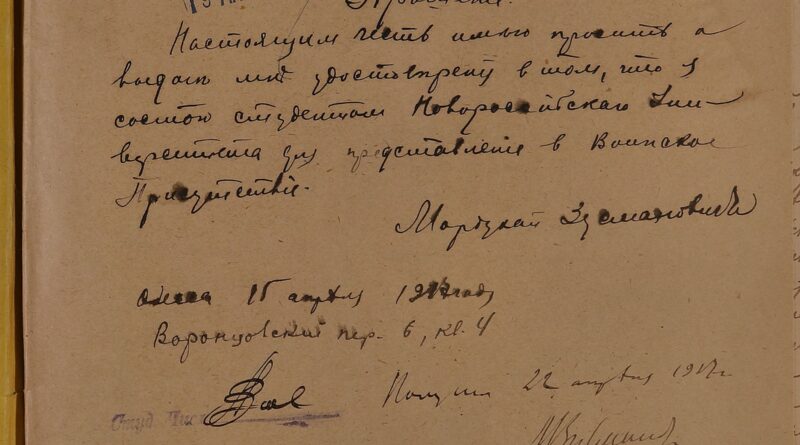 Прошение.
Настоящим честь имею просить о
выдаче мне удостоверения в том, что я
состою студентом Новороссийскаго Уни-
верситета для представления в Воинское
Присутствие.
Мордухай
Одесса 15 апреля 1917 года
Воронцовский пер. 6, кв. 4
Получил 22 апреля 1917 г.
Студ.